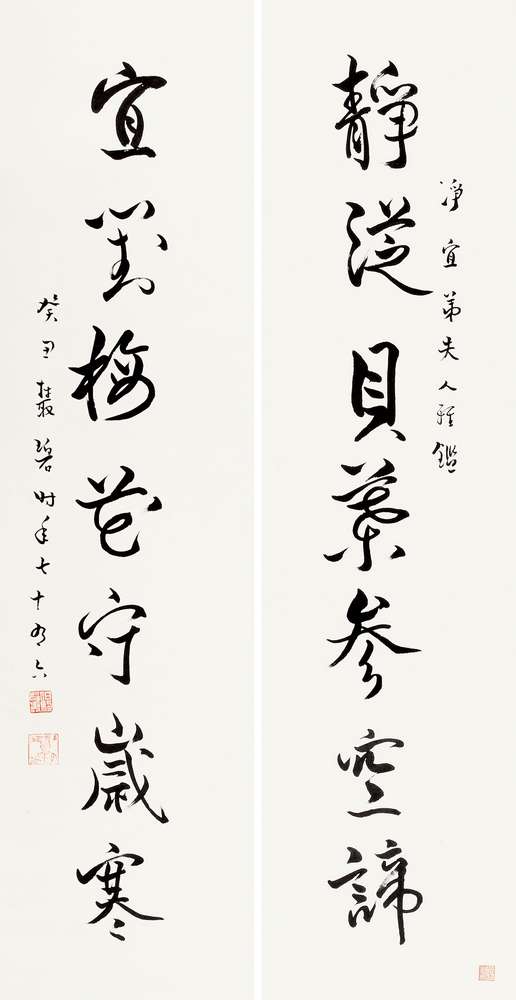 靜從貝葉參空諦
淨宜弟夫人雅鑑
宜對梅花守歲寒
癸丑叢碧時年七十有六